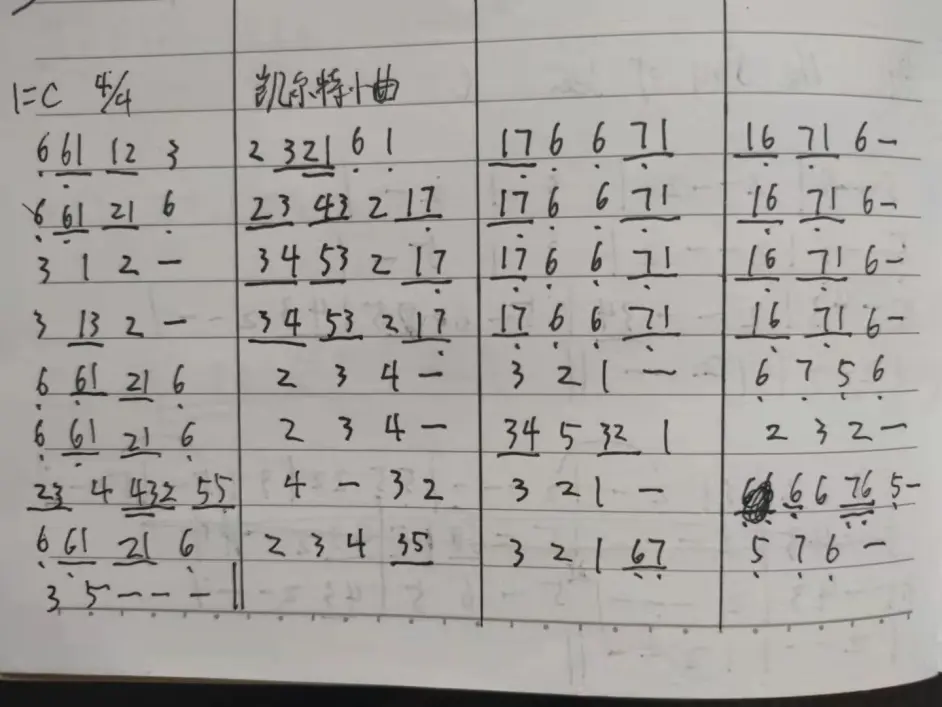 1=C 4/4 凯尔特小曲
6 61 12 3 2 321 6 1 17 6 6 71 16 71 6 -
6 61 21 6 23 43 2 17 17 6 6 71 16 71 6 -
3 1 2 - 34 53 2 17 17 6 6 71 16 71 6 -
3 13 2 - 34 53 2 17 17 6 6 71 16 71 6 -
6 61 21 6 2 3 4 - 3 2 1 - 6 7 5 6
6 61 21 6 2 3 4 - 34 5 32 1 2 3 2 -
23 4 432 55 4 - 32 3 2 1 - 6 6 76 5 -
6 61 21 6 2 3 4 35 3 2 1 67 5 7 6 -
3 5 - - - ||